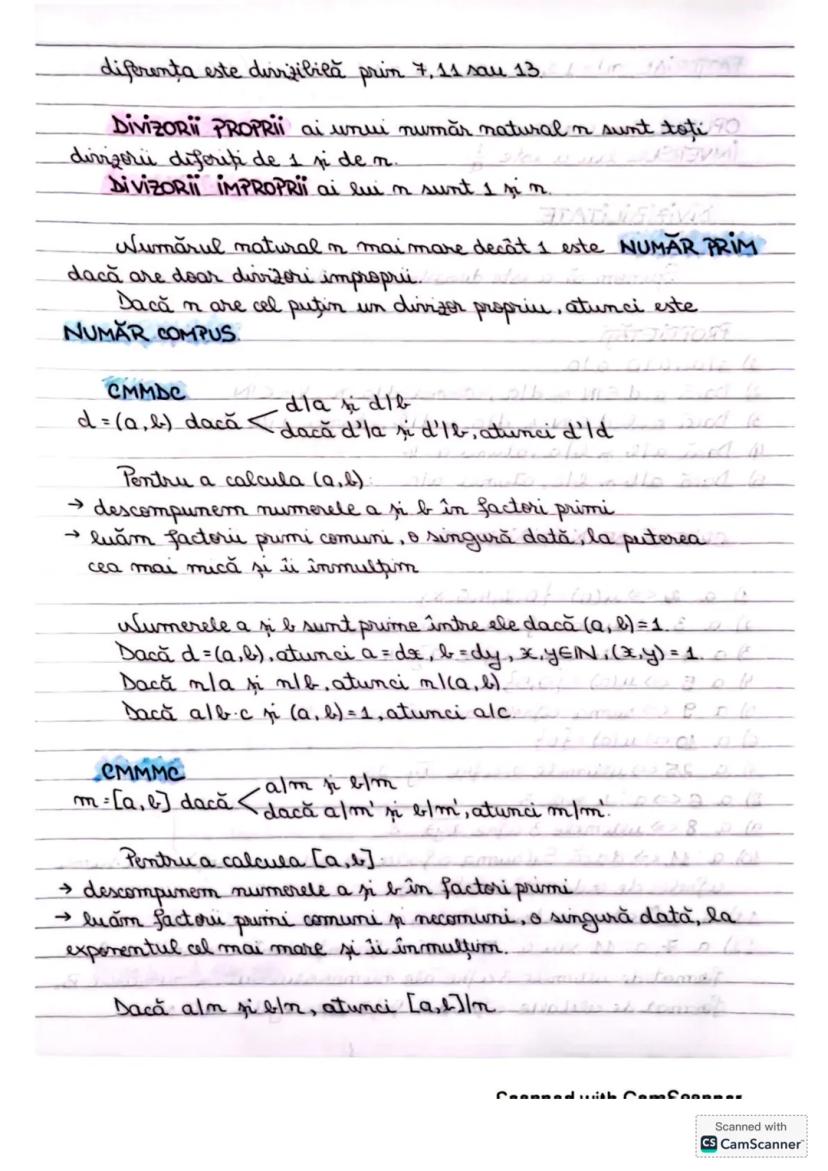 diferența este divizibilă prin 7, 11 sau 13.
DIVIZORII PROPRII ai unui număr natural n sunt toți
divizorii diferiți de 1 și de n.
DIVIZORII IMPROPRII ai lui n sunt 1 și n.
Numărul natural n mai mare decât 1 este NUMĂR PRIM
dacă are doar divizori improprii.
Dacă n are cel puțin un divizor propriu, atunci este
NUMĂR COMPUS.
CMMDC
d = (a, b) dacă < d|a și d|b
dacă d'|a și d'|b, atunci d'|d
Pentru a calcula (a, b):
→ descompunem numerele a și b în factori primi
→ luăm factorii primi comuni, o singură dată, la puterea
cea mai mică și îi înmulțim
Numerele a și b sunt prime între ele dacă (a, b) = 1.
Dacă d = (a, b), atunci a = dx, b = dy, x, y ∈ ℕ, (x, y) = 1.
Dacă n|a și n|b, atunci n|(a, b).
Dacă a|b·c și (a, b) = 1, atunci a|c.
CMMMC
m = [a, b] dacă < a|m și b|m
dacă a|m' și b|m', atunci m|m'.
Pentru a calcula [a, b]:
→ descompunem numerele a și b în factori primi
→ luăm factorii primi comuni și necomuni, o singură dată, la
exponentul cel mai mare și îi înmulțim.
Dacă a|n și b|n, atunci [a, b]|n
Scanned with CamScanner
Scanned with
CS CamScanner